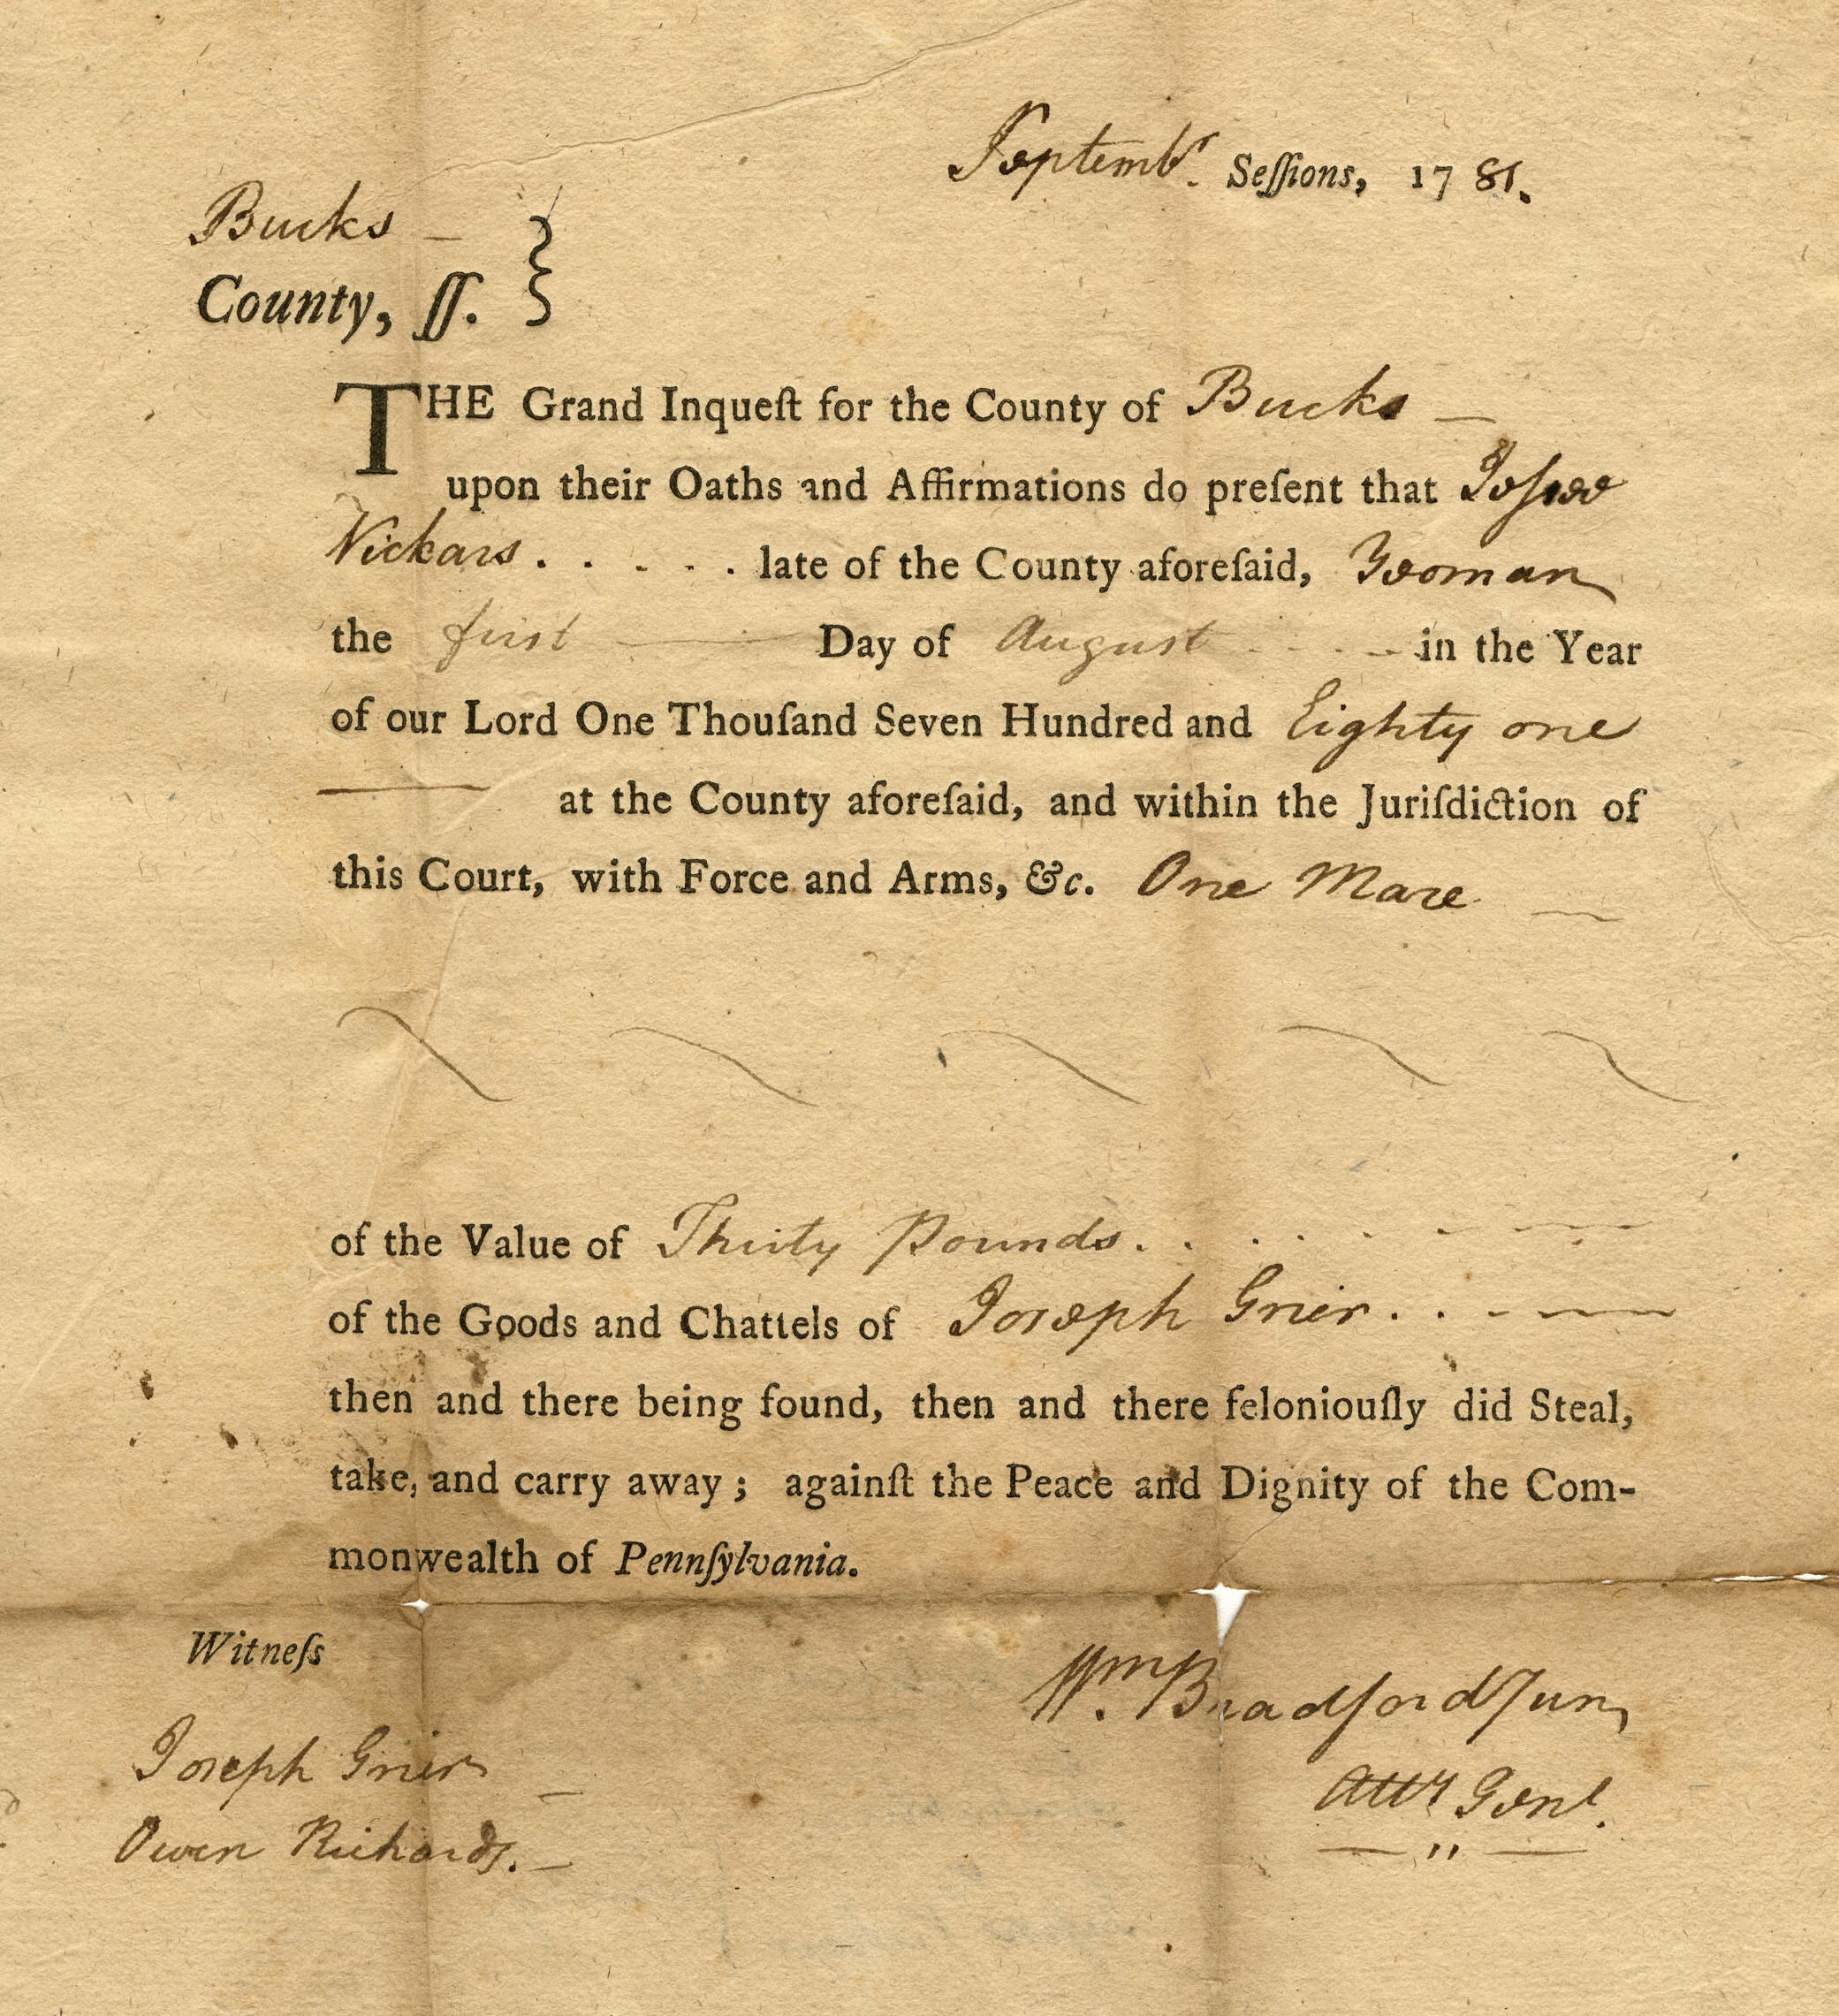 Septembr. Seſſions, 1781.
Bucks
County, ſſ.
THE Grand Inqueſt for the County of Bucks
upon their Oaths and Affirmations do preſent that Jesse
Vickars . . . . . late of the County aforeſaid, Yeoman
the first Day of August in the Year
of our Lord One Thouſand Seven Hundred and Eighty one
at the County aforeſaid, and within the Juriſdiction of
this Court, with Force and Arms, &c. One Mare
of the Value of Thirty Pounds. . . . .
of the Goods and Chattels of Joseph Grier. . .
then and there being found, then and there feloniouſly did Steal,
take, and carry away; againſt the Peace and Dignity of the Com-
monwealth of Pennſylvania.
Witneſs
Wm. Bradford Jun,
Joseph Grier
Atty Genl.
Owen Richards.